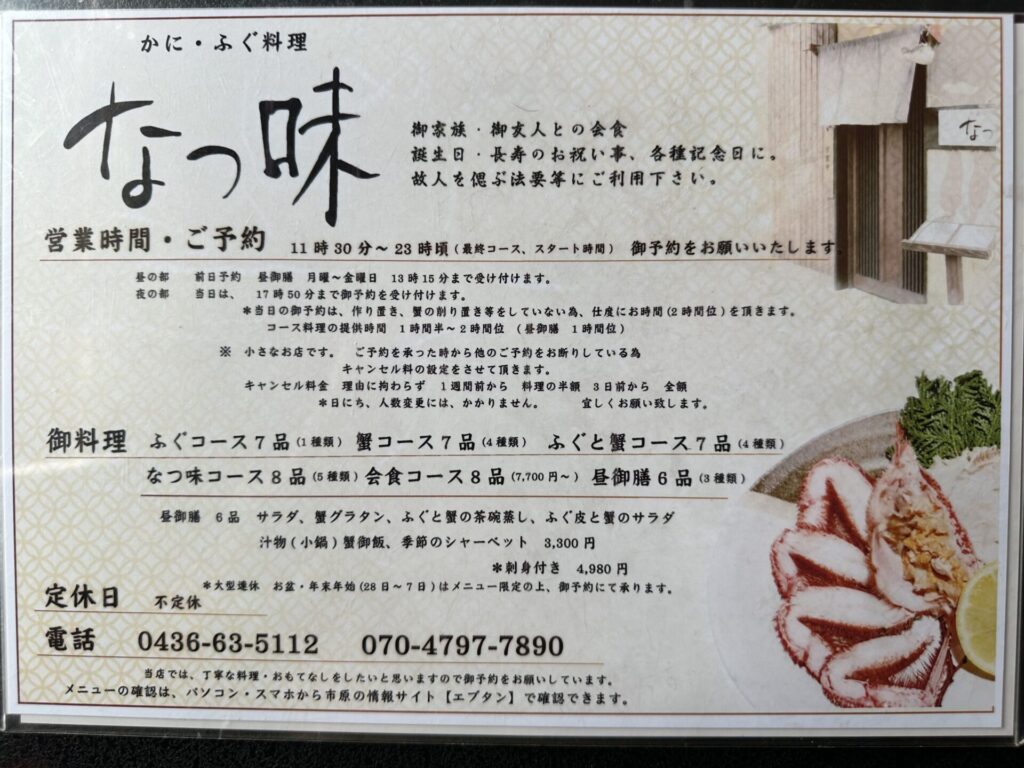 かに・ふぐ料理
なつ味
御家族・御友人との会食
誕生日・長寿のお祝い事、各種記念日に。
故人を偲ぶ法要等にご利用下さい。
なっ
営業時間・ご予約 11時30分～23時頃(最終コース、スタート時間) 御予約をお願いいたします
昼の部 前日予約 昼御膳 月曜～金曜日 13時15分まで受け付けます。
夜の部 当日は、 17時50分まで御予約を受け付けます。
＊当日の御予約は、作り置き、蟹の削り置き等をしていない為、仕度にお時間(2時間位)を頂きます。
コース料理の提供時間 1時間半～2時間位 (昼御膳 1時間位)
※ 小さなお店です。 ご予約を承った時から他のご予約をお断りしている為
キャンセル料の設定をさせて頂きます。
キャンセル料金 理由に拘わらず 1週間前から 料理の半額 3日前から 全額
＊日にち、人数変更には、かかりません。 宜しくお願い致します。
御料理 ふぐコース7品(1種類) 蟹コース7品(4種類) ふぐと蟹コース7品(4種類)
なつ味コース8品(5種類) 会食コース8品(7,700円～) 昼御膳6品(3種類)
昼御膳 6品 サラダ、蟹グラタン、ふぐと蟹の茶碗蒸し、ふぐ皮と蟹のサラダ
汁物(小鍋)蟹御飯、季節のシャーベット 3,300円
＊刺身付き 4,980円
＊大型連休 お盆・年末年始(28日～7日)はメニュー限定の上、御予約にて承ります。
定休日 不定休
電話 0436-63-5112 070-4797-7890
当店では、丁寧な料理・おもてなしをしたいと思いますので御予約をお願いしています。
メニューの確認は、パソコン・スマホから市原の情報サイト【エブタン】で確認できます。